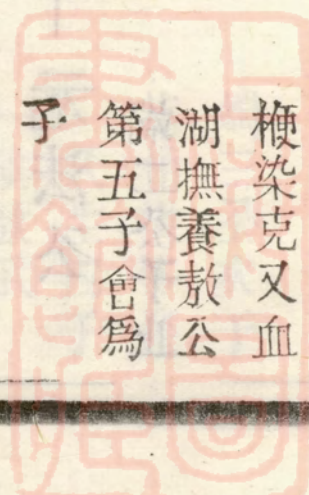 楩染克又血
湖撫養敖公
第五子會爲
子